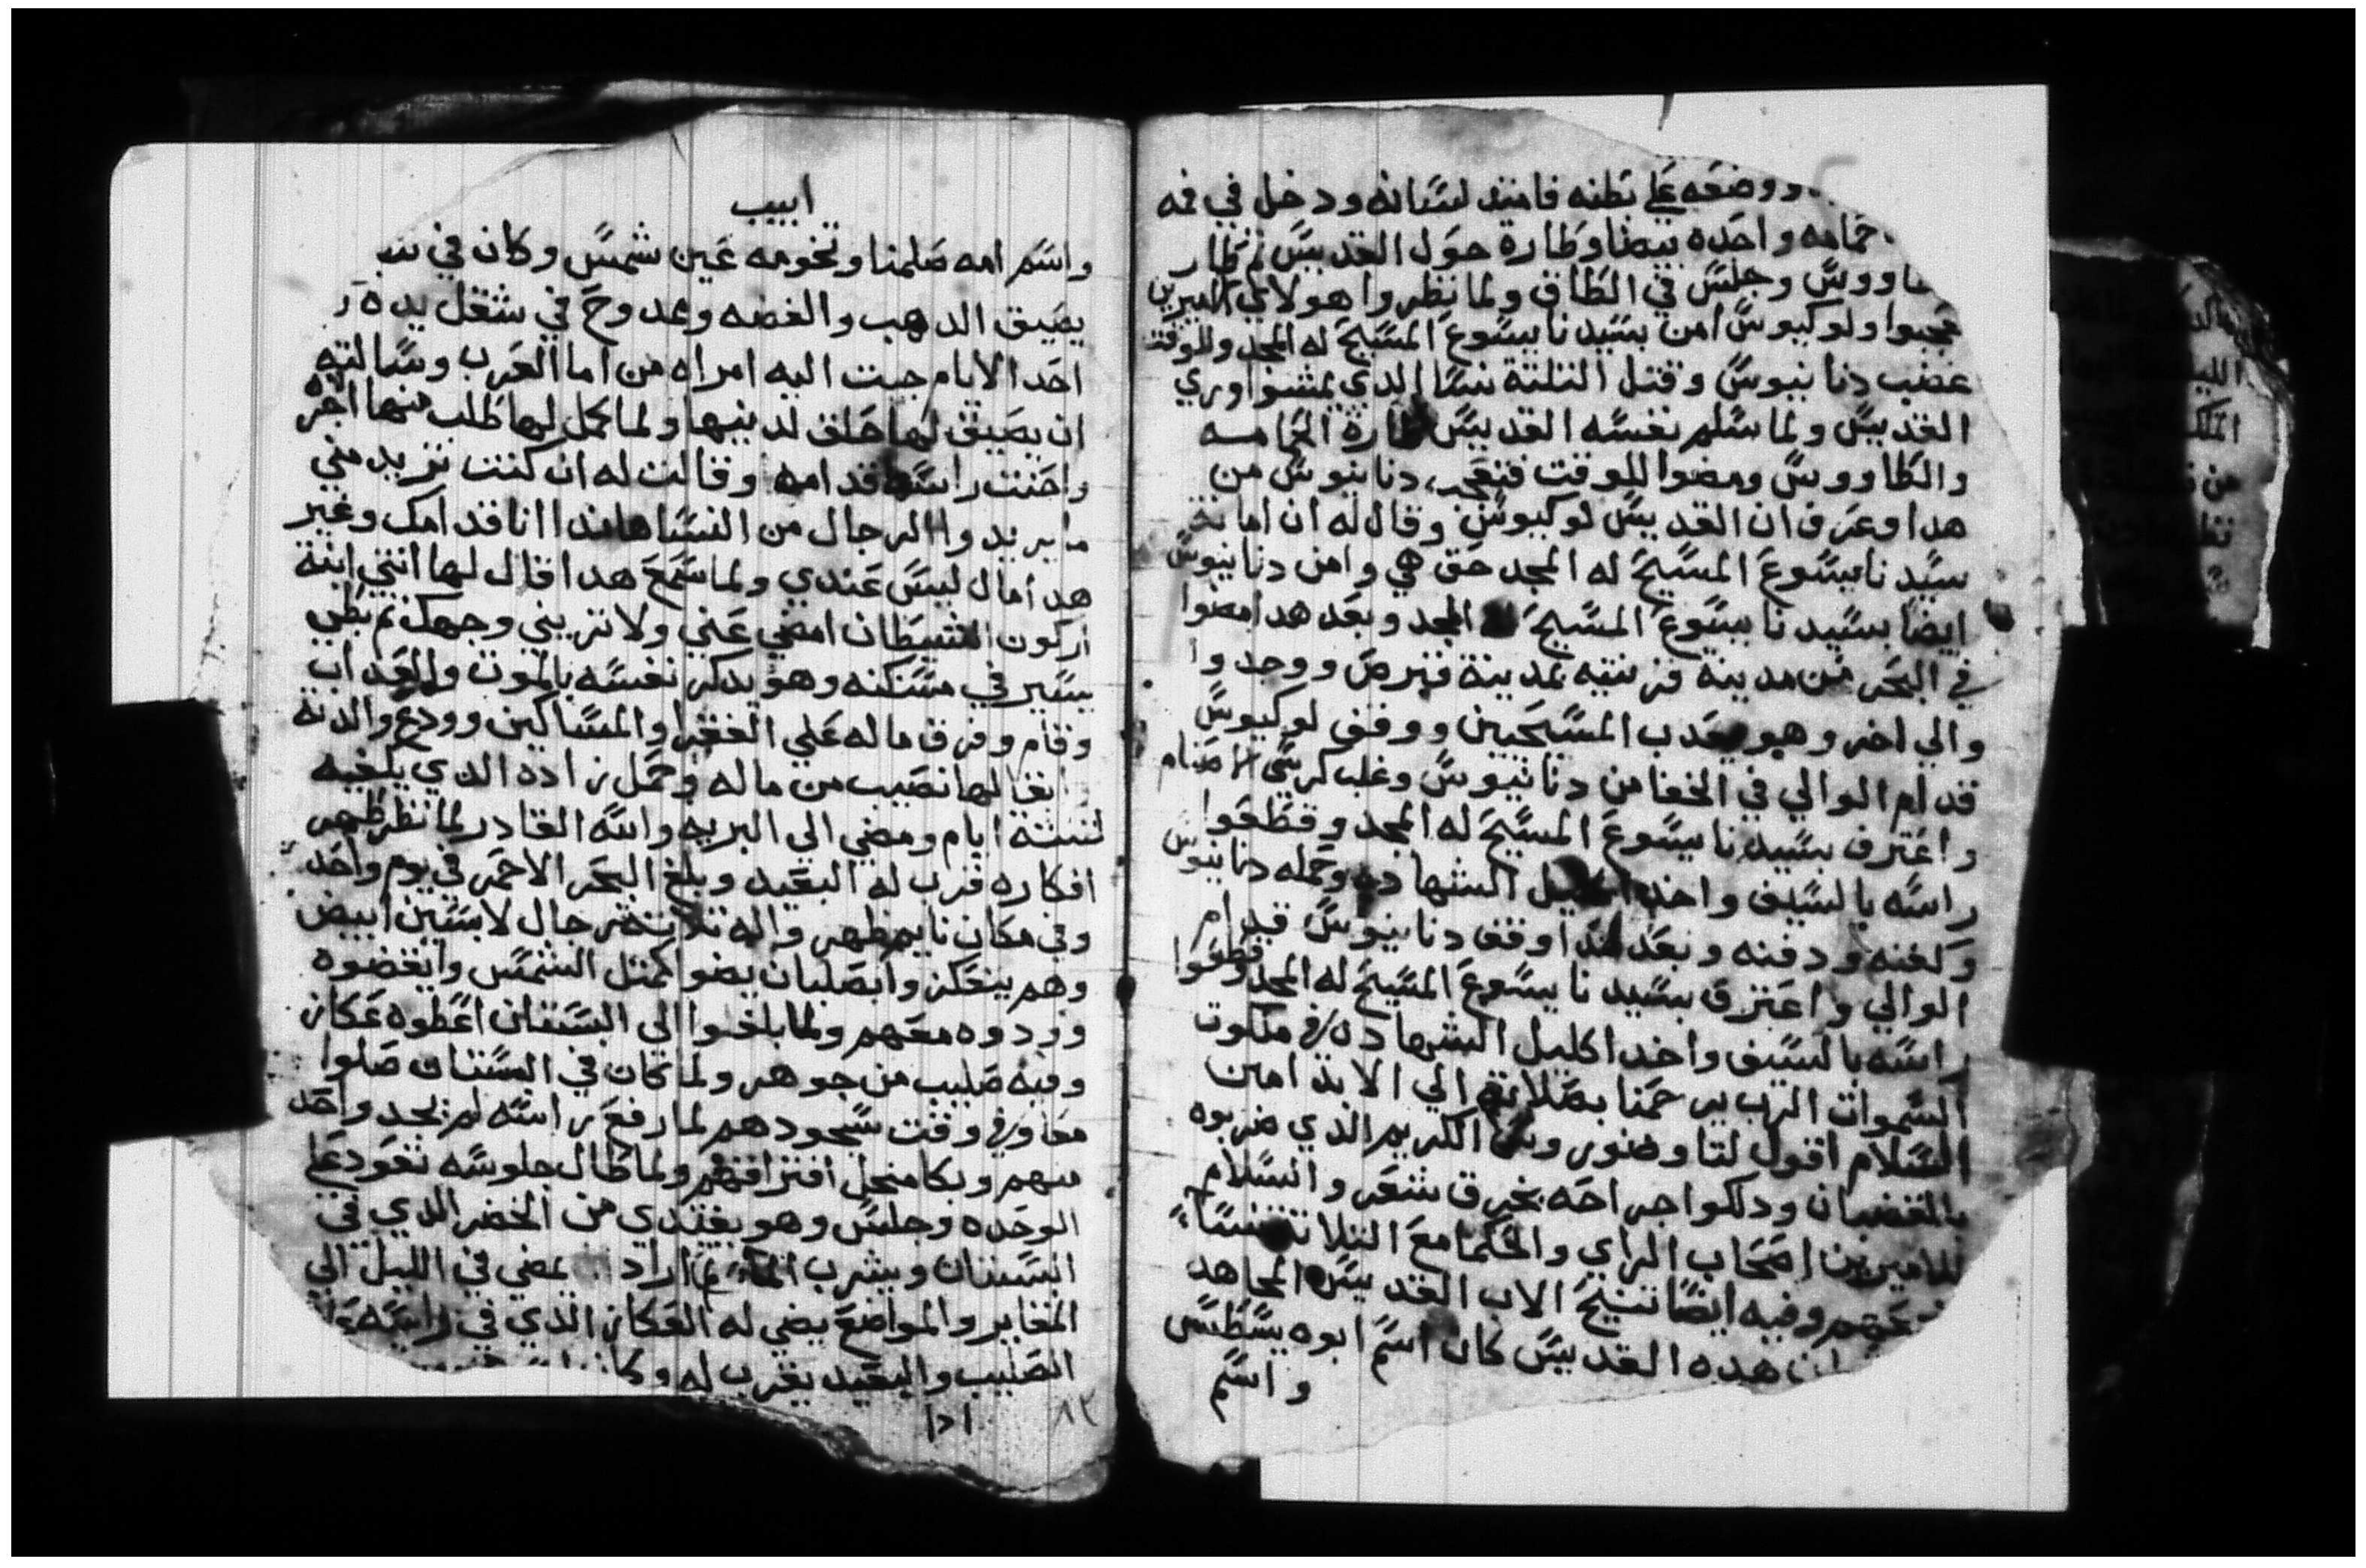 ووضعه على بطنه فامتد لسانه ودخل في فمه
حمامه واحده بيضا وطارة حول القديس ثم طار
وجلس في الطاق ولما نظروا هولاي الاميرين
عجبوا ولوكيوس امن بسيدنا يسوع المسيح له المجد وللوقت
غضب دنانيوس وقتل التلتة نسا الدي يمشوا وري
القديس ولما سلم نفسه القديس طارة الحمامه
والطاووس ومضوا للوقت فتعجب دنانيوس من
هدا وعرف ان القديس لوكيوس وقال له ان امانة
سيدنا يسوع المسيح له المجد حق هي وامن دنانيوس
ايضا بسيدنا يسوع المسيح له المجد وبعد هدا مضوا
في البحر من مدينة قرنتيه لمدينة قبرص ووجدوا
والي اخر وهو يعدب المسيحيين ووقف لوكيوس
قدام الوالي في الخفا من دنانيوس وغلب كرسي الاصنام
واعترف بسيدنا يسوع المسيح له المجد وقطعوا
راسه بالسيف واخد اكليل الشهاده وحمله دنانيوس
وكفنه ودفنه وبعد هدا اوقف دنانيوس قدام
الوالي واعترف بسيدنا يسوع المسيح له المجد وقطعوا
راسه بالسيف واخد اكليل الشهاده في ملكوت
السموات الرب يرحمنا بصلاته الي الابد امين
السلام اقول لتاوضوروس الكريم الدي ضربوه
بالقضبان ودلكوا جراحه بخرق شعر والسلام
للاميرين اصحاب الراي والحكما مع التلاتة نسا
وفيه ايضا تنيح الاب القديس المجاهد
هده القديس كان اسم ابوه يسطس
واسم
ابيب
واسم امه صلمنا وتخومه عين شمس وكان في
يصيق الدهب والفضه وممدوح في شغل يده
احد الايام جبت اليه امراه من اما العرب وسالته
ان يصيق لها حلق لدنيها ولما كمل لها طلب منها اجره
واحنت راسها قدامه وقالت له ان كنت تريد مني
ما يريدوا الرجال من النسا هاندا انا قدامك وغير
هدا مال ليس عندي ولما سمع هدا قال لها انتي ابنة
اركون الشيطان امضي عني ولا تريني وجهك ثم بطي
يسير في مسكنه وهو يدكر نفسه بالموت والعداب
وقام وفرق ماله علي الفقرا والمساكين وودع والدته
ابقا لها نصيب من ماله وحمل زاده الدي يكفيه
لتلتة ايام ومضي الي البريه والله القادر لما نظر طهر
افكاره قرب له البعيد وبلغ البحر الاحمر في يوم واحد
وفي مكان نايم ظهروا له تلاتة رجال لابسين ابيض
وهم بيعكز وابصلبان يضوا كمثل الشمس وايقضوه
وودوه معهم ولما بلغوا الي البستان اعطوه عكاز
وفيه صليب من جوهر ولما كان في البستان صلوا
معا وفي وقت سجودهم لما رفع راسه لم يجد واحد
منهم وبكا منجل افتراقهم ولما طال جلوسه تعود على
الوحده وجلس وهو يغتدي من الخضر الدي في
البستان ويشرب الما ثم اراد يمضي في الليل الي
المغاير والمواضع يضي له العكاز الدي في راسه
الصليب والبعيد يقرب له وكان
ادا
٨٢